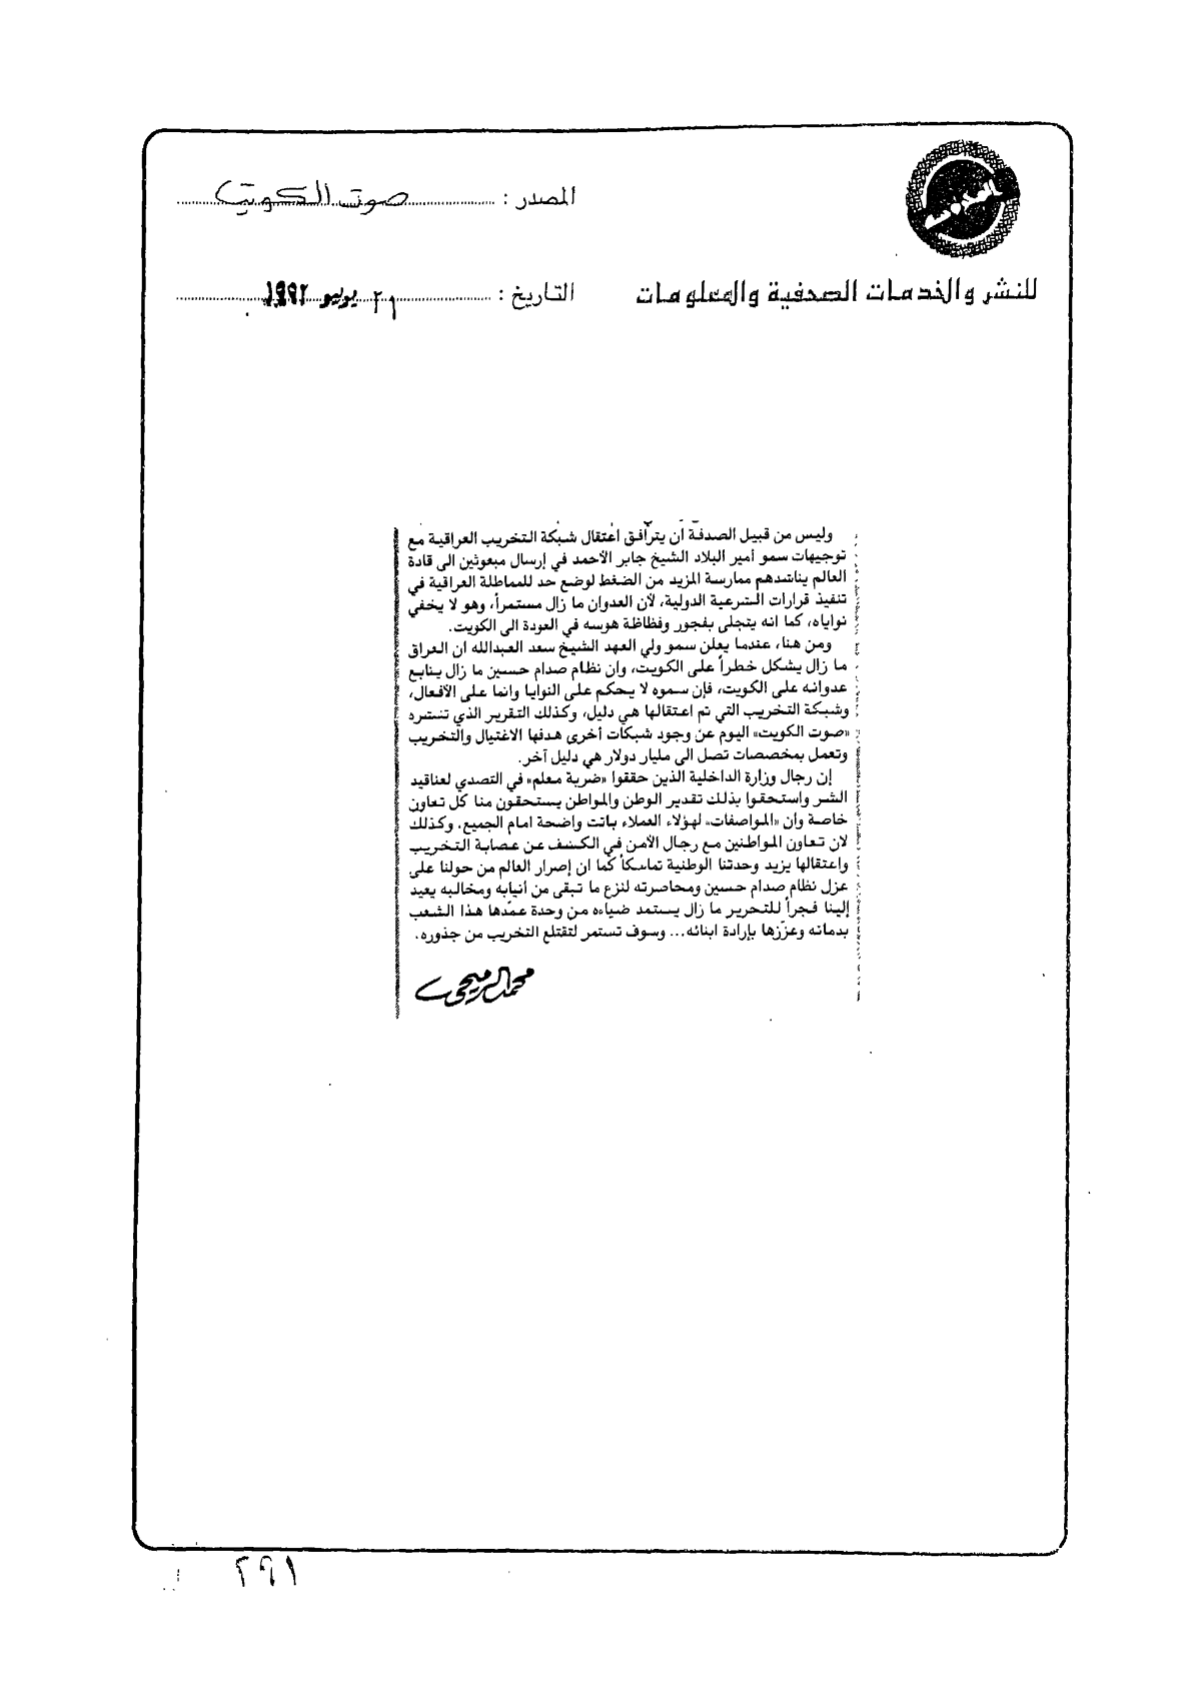 المصدر : صوت الكويت
للنشر والخدمات الصحفية والمعلومات
التاريخ : ٢٦ يوليو ١٩٩٢
وليس من قبيل الصدفة أن يترافق اعتقال شبكة التخريب العراقية مع
توجيهات سمو أمير البلاد الشيخ جابر الأحمد في إرسال مبعوثين الى قادة
العالم يناشدهم ممارسة المزيد من الضغط لوضع حد للمماطلة العراقية في
تنفيذ قرارات الشرعية الدولية، لأن العدوان ما زال مستمراً، وهو لا يخفي
نواياه، كما انه يتجلى بفجور وفظاظة هوسه في العودة الى الكويت.
ومن هنا، عندما يعلن سمو ولي العهد الشيخ سعد العبدالله ان العراق
ما زال يشكل خطراً على الكويت، وان نظام صدام حسين ما زال يتابع
عدوانه على الكويت، فإن سموه لا يحكم على النوايا وانما على الأفعال،
وشبكة التخريب التي تم اعتقالها هي دليل، وكذلك التقرير الذي تنشره
«صوت الكويت» اليوم عن وجود شبكات أخرى هدفها الاغتيال والتخريب
وتعمل بمخصصات تصل الى مليار دولار هي دليل آخر.
إن رجال وزارة الداخلية الذين حققوا «ضربة معلم» في التصدي لعناقيد
الشر واستحقوا بذلك تقدير الوطن والمواطن يستحقون منا كل تعاون
خاصة وان «المواصفات» لهؤلاء العملاء باتت واضحة امام الجميع، وكذلك
لان تعاون المواطنين مع رجال الأمن في الكشف عن عصابة التخريب
واعتقالها يزيد وحدتنا الوطنية تماسكاً كما ان إصرار العالم من حولنا على
عزل نظام صدام حسين ومحاصرته لنزع ما تبقى من أنيابه ومخالبه يعيد
إلينا فجراً للتحرير ما زال يستمد ضياءه من وحدة عمّدها هذا الشعب
بدمائه وعزّزها بإرادة ابنائه... وسوف تستمر لتقتلع التخريب من جذوره.
محمد الرميحي
٢٩١